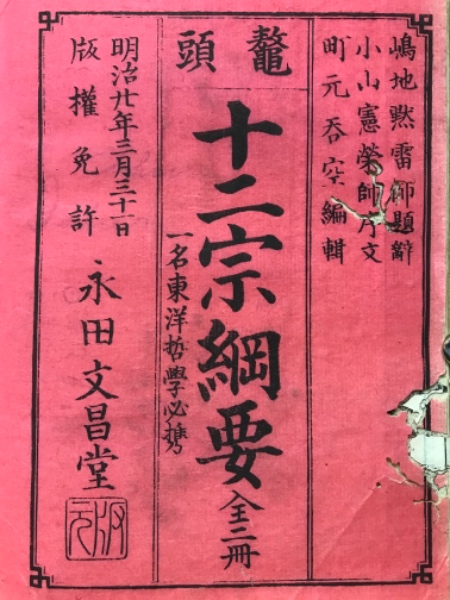 嶋地黙雷師題辭
小山憲榮師序文
町元呑空編輯
鼇頭
十二宗綱要 全二冊
一名東洋哲學必携
明治廿年三月三十一日
版權免許
永田文昌堂